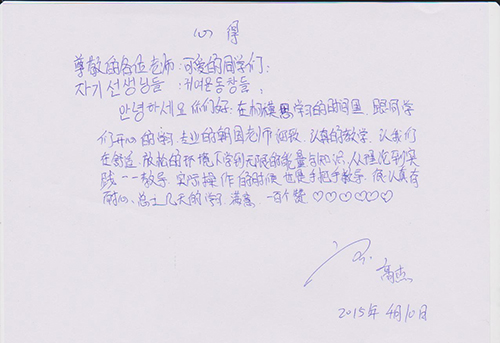 心 得
尊敬的各位老师:可爱的同学们:
자기 선생님들 : 귀여운 동창들 ;
안녕하세요 你们好: 在 学习的时间里, 跟同学
们开心的学习, 专业的韩国老师 认真的教学, 让我们
在舒适、放松的环境下学到无限的能量与知识, 从理论到实
践一一教导, 实际操作的时候也是手把手教导, 很认真有
耐心、总之几天的学习, 满意, 一百个赞 ♡♡♡♡♡♡
高杰
2015年4月10日